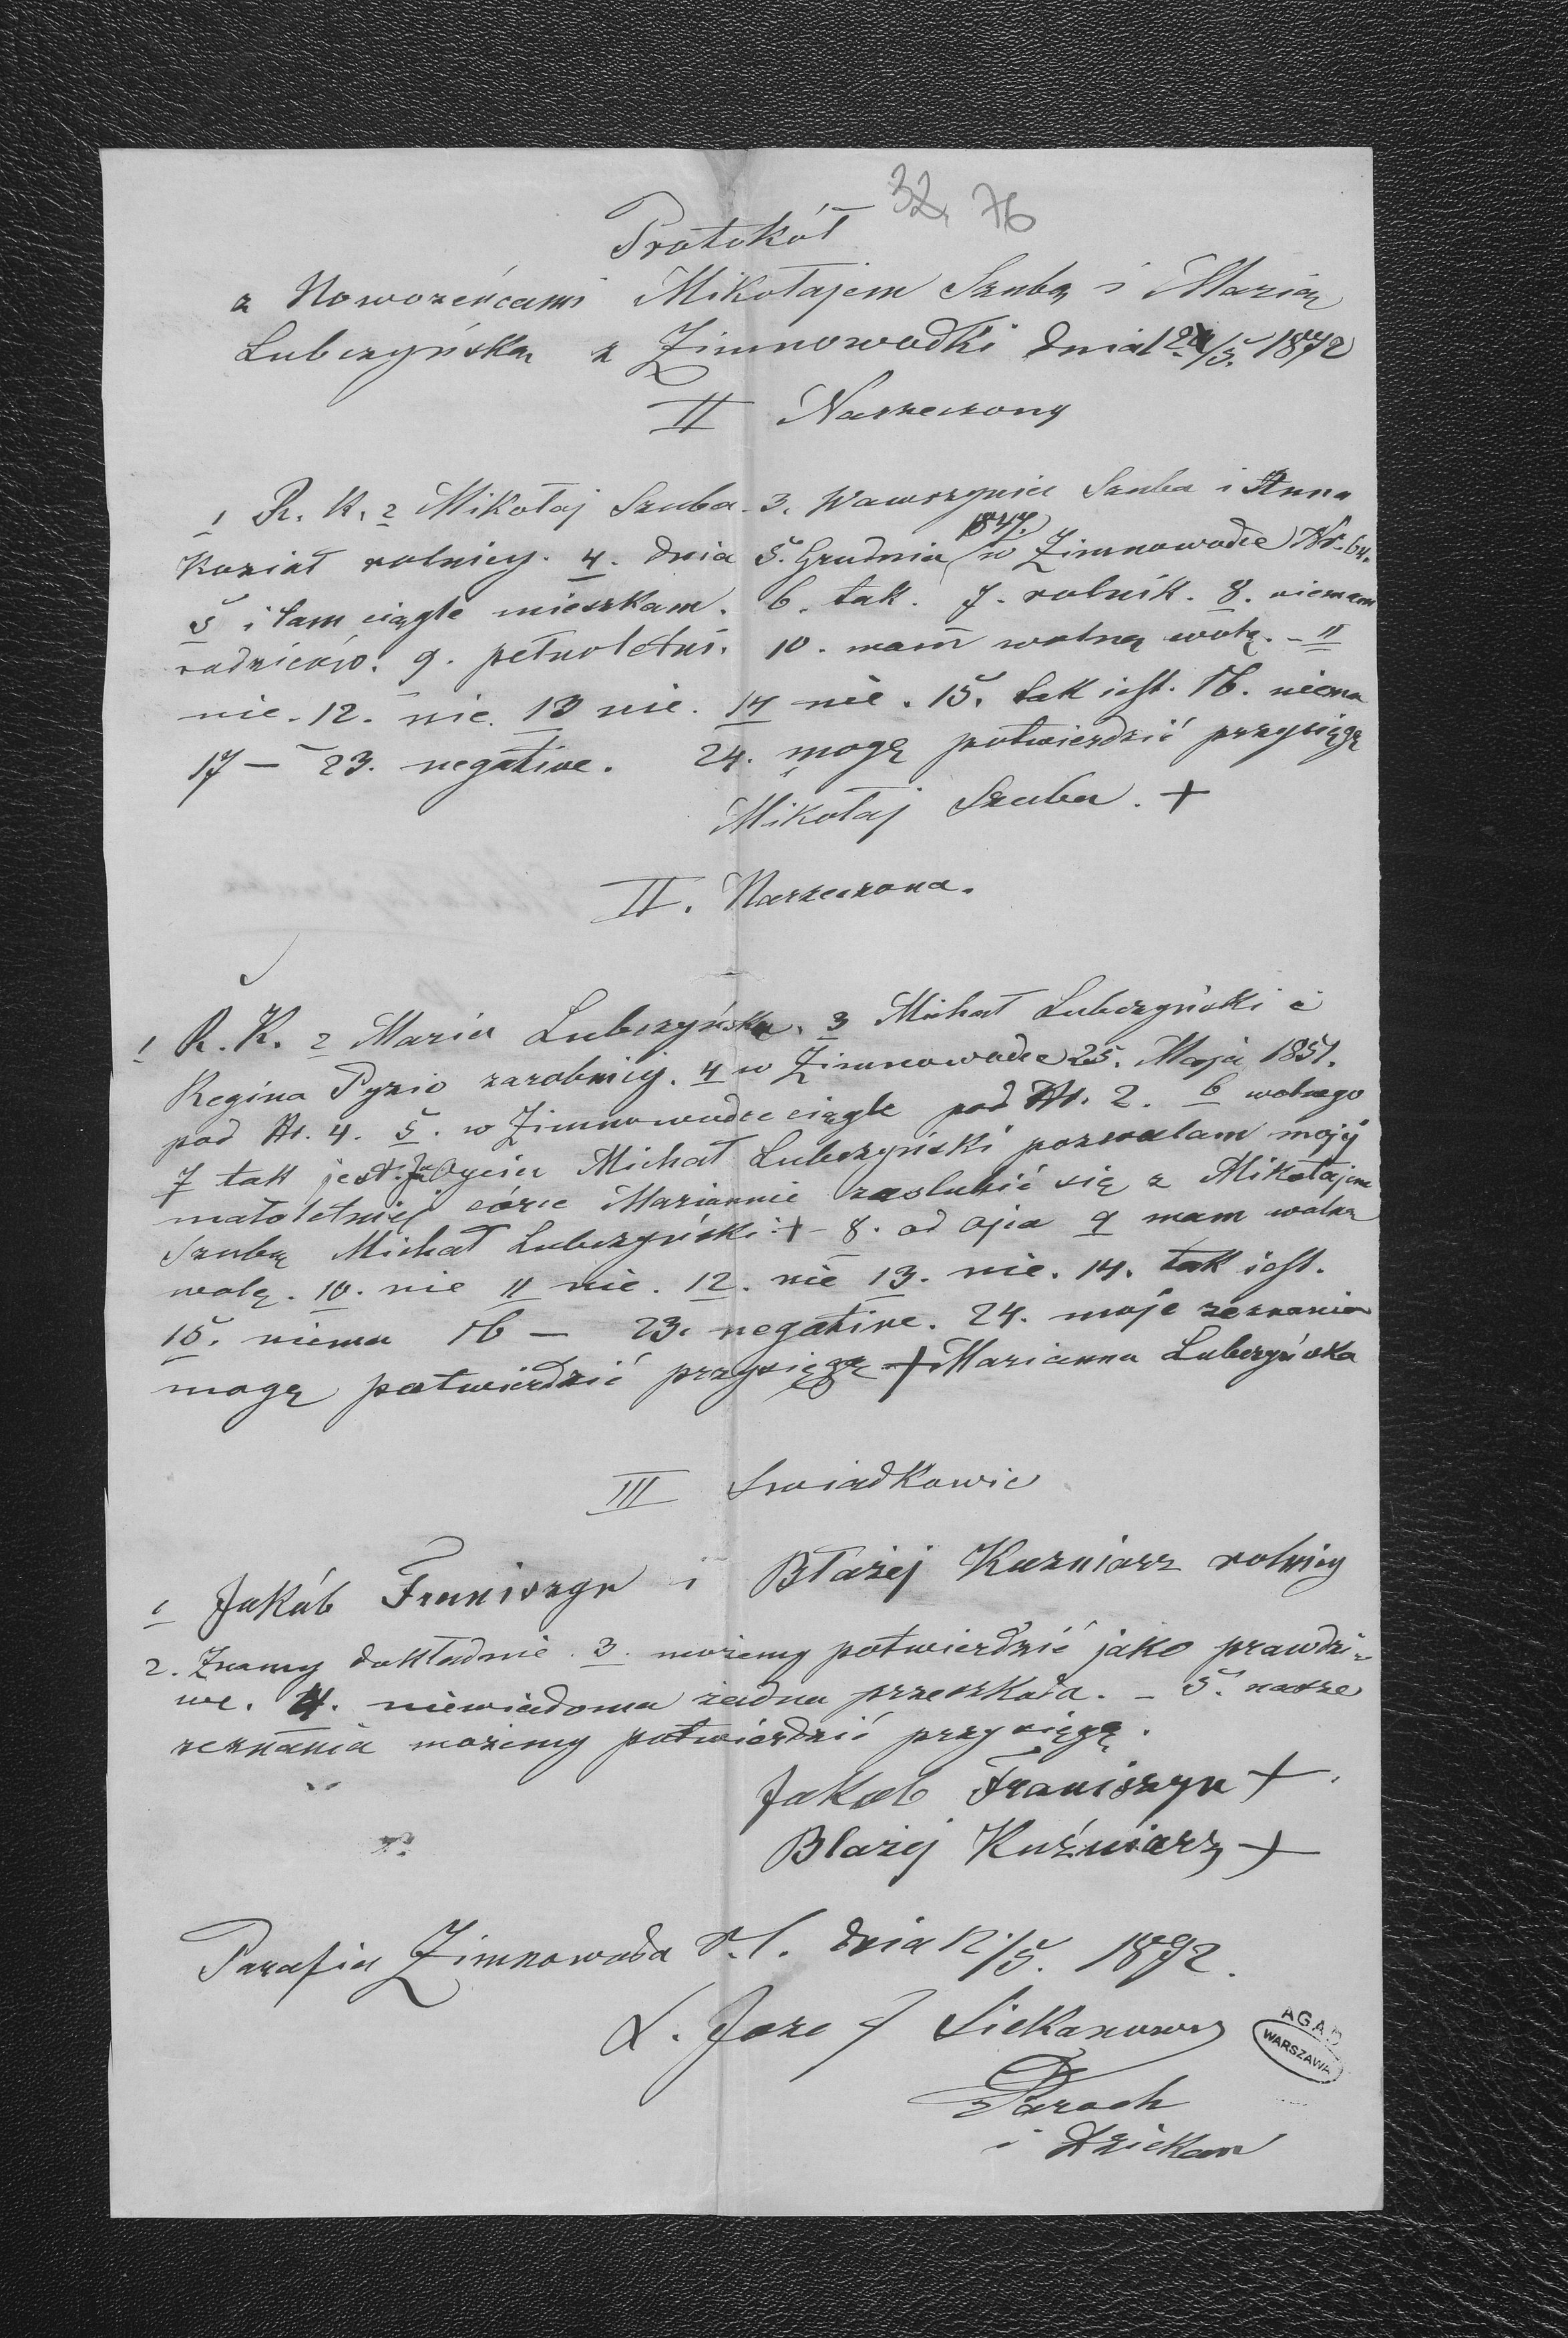 32. 76
Protokół
z Nowożeńcami Mikołajem Szubą i Marią
Lubczyńską z Zimnowodki dnia 12/5. 1872
II Narzeczony
1 R. K. 2 Mikołaj Szuba. 3. Wawrzyniec Szuba i Anna
Kozioł rolnicy. 4. dnia 5. Grudnia 1847. w Zimnowodce Nr. 64.
5 i tam ciągle mieszkam. 6. tak. 7. rolnik. 8. niemam
rodziców. 9. pełnoletni. 10. mam wolną wolę. - 11
nie. 12. nie. 13 nie. 14 nie. 15. tak jest. 16. niema
17 — 23. negative. 24. mogę potwierdzić przysięgą
Mikołaj Szuba. +
II. Narzeczona.
1 R. K. 2 Maria Lubczyńska. 3 Michał Lubczyński i
Regina Pyzio zarobnicy. 4 w Zimnowodce 25. Maja 1851.
pod Nr. 4. 5. w Zimnowodce ciągle pod Nr. 2. 6 wolnego
7 tak jest. Ja Ojciec Michał Lubczyński pozwalam mojej
małoletniej córce Mariannie zaslubić się z Mikołajem
Szubą Michał Lubczyński + - 8. od ojca 9 mam wolną
wolę. 10. nie 11 nie. 12. nie 13. nie. 14. tak jest.
15. niema 16 — 23. negative. 24. moje zeznania
mogę potwierdzić przysięgą + Marianna Lubczyńska
III Swiadkowie
1 Jakób Franiszyn i Błażej Kuzniarz rolnicy
2. Znamy dokładnie. 3. możemy potwierdzić jako prawdzi-
we. 4. niewiadoma żadna przeszkoda. - 5. nasze
zeznania możemy potwierdzić przysięgą.
Jakob Franiszyn +.
Blażej Kuźniarz +
Parafia Zimnowoda r. l. dnia 12/5. 1872.
X. Jozef Siekanowz
Paroch
i dziekan
A.G.A.D
WARSZAWA